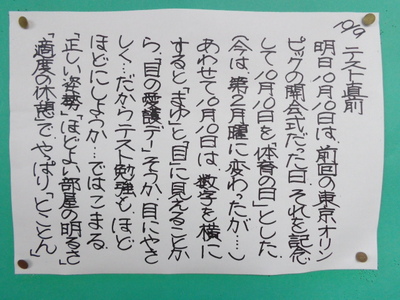 10/9 テスト直前
明日10月10日は、前回の東京オリン
ピックの開会式だった日。それを記念
して10月10日を「体育の日」とした。
(今は、第2月曜に変わったが…。)
あわせて10月10日は、数字を横に
すると「まゆ」と「目」に見えることか
ら、「目の愛護デー」そうか、目にやさ
しく…だからテスト勉強も、ほど
ほどにしようか…ではこまる。
「正しい姿勢」「ほどよい部屋の明るさ」
「適度の休憩」で、やっぱり「とことん」